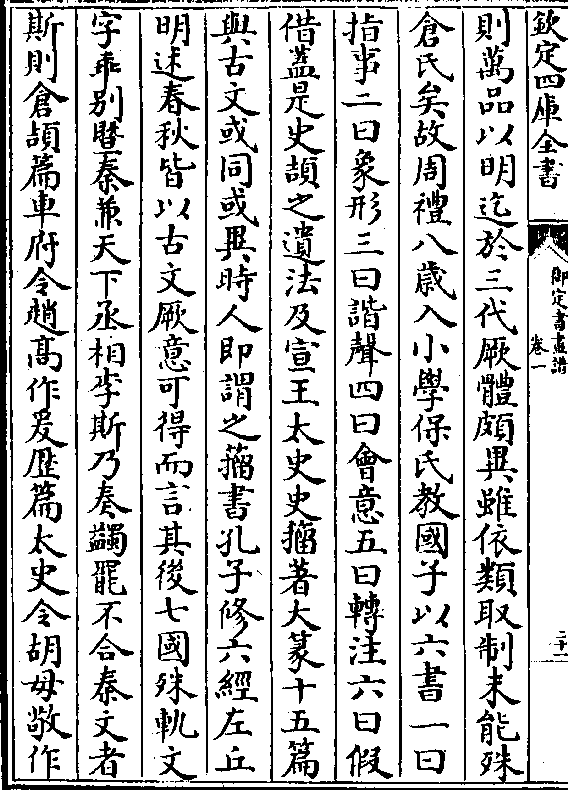 欽定四庫全書
御定書畫譜
卷一
則萬品以明迄於三代厥體頗異雖依類取制未能殊
倉氏矣故周禮八歲入小學保氏教國子以六書一曰
指事二曰象形三曰諧聲四曰會意五曰轉注六曰假
借蓋是史頡之遺法及宣王太史史籀著大篆十五篇
與古文或同或異時人即謂之籀書孔子修六經左丘
明述春秋皆以古文厥意可得而言其後七國殊軌文
字乖别暨秦兼天下丞相李斯乃奏蠲罷不合秦文者
斯則倉頡篇車府令趙髙作爰歴篇太史令胡母敬作